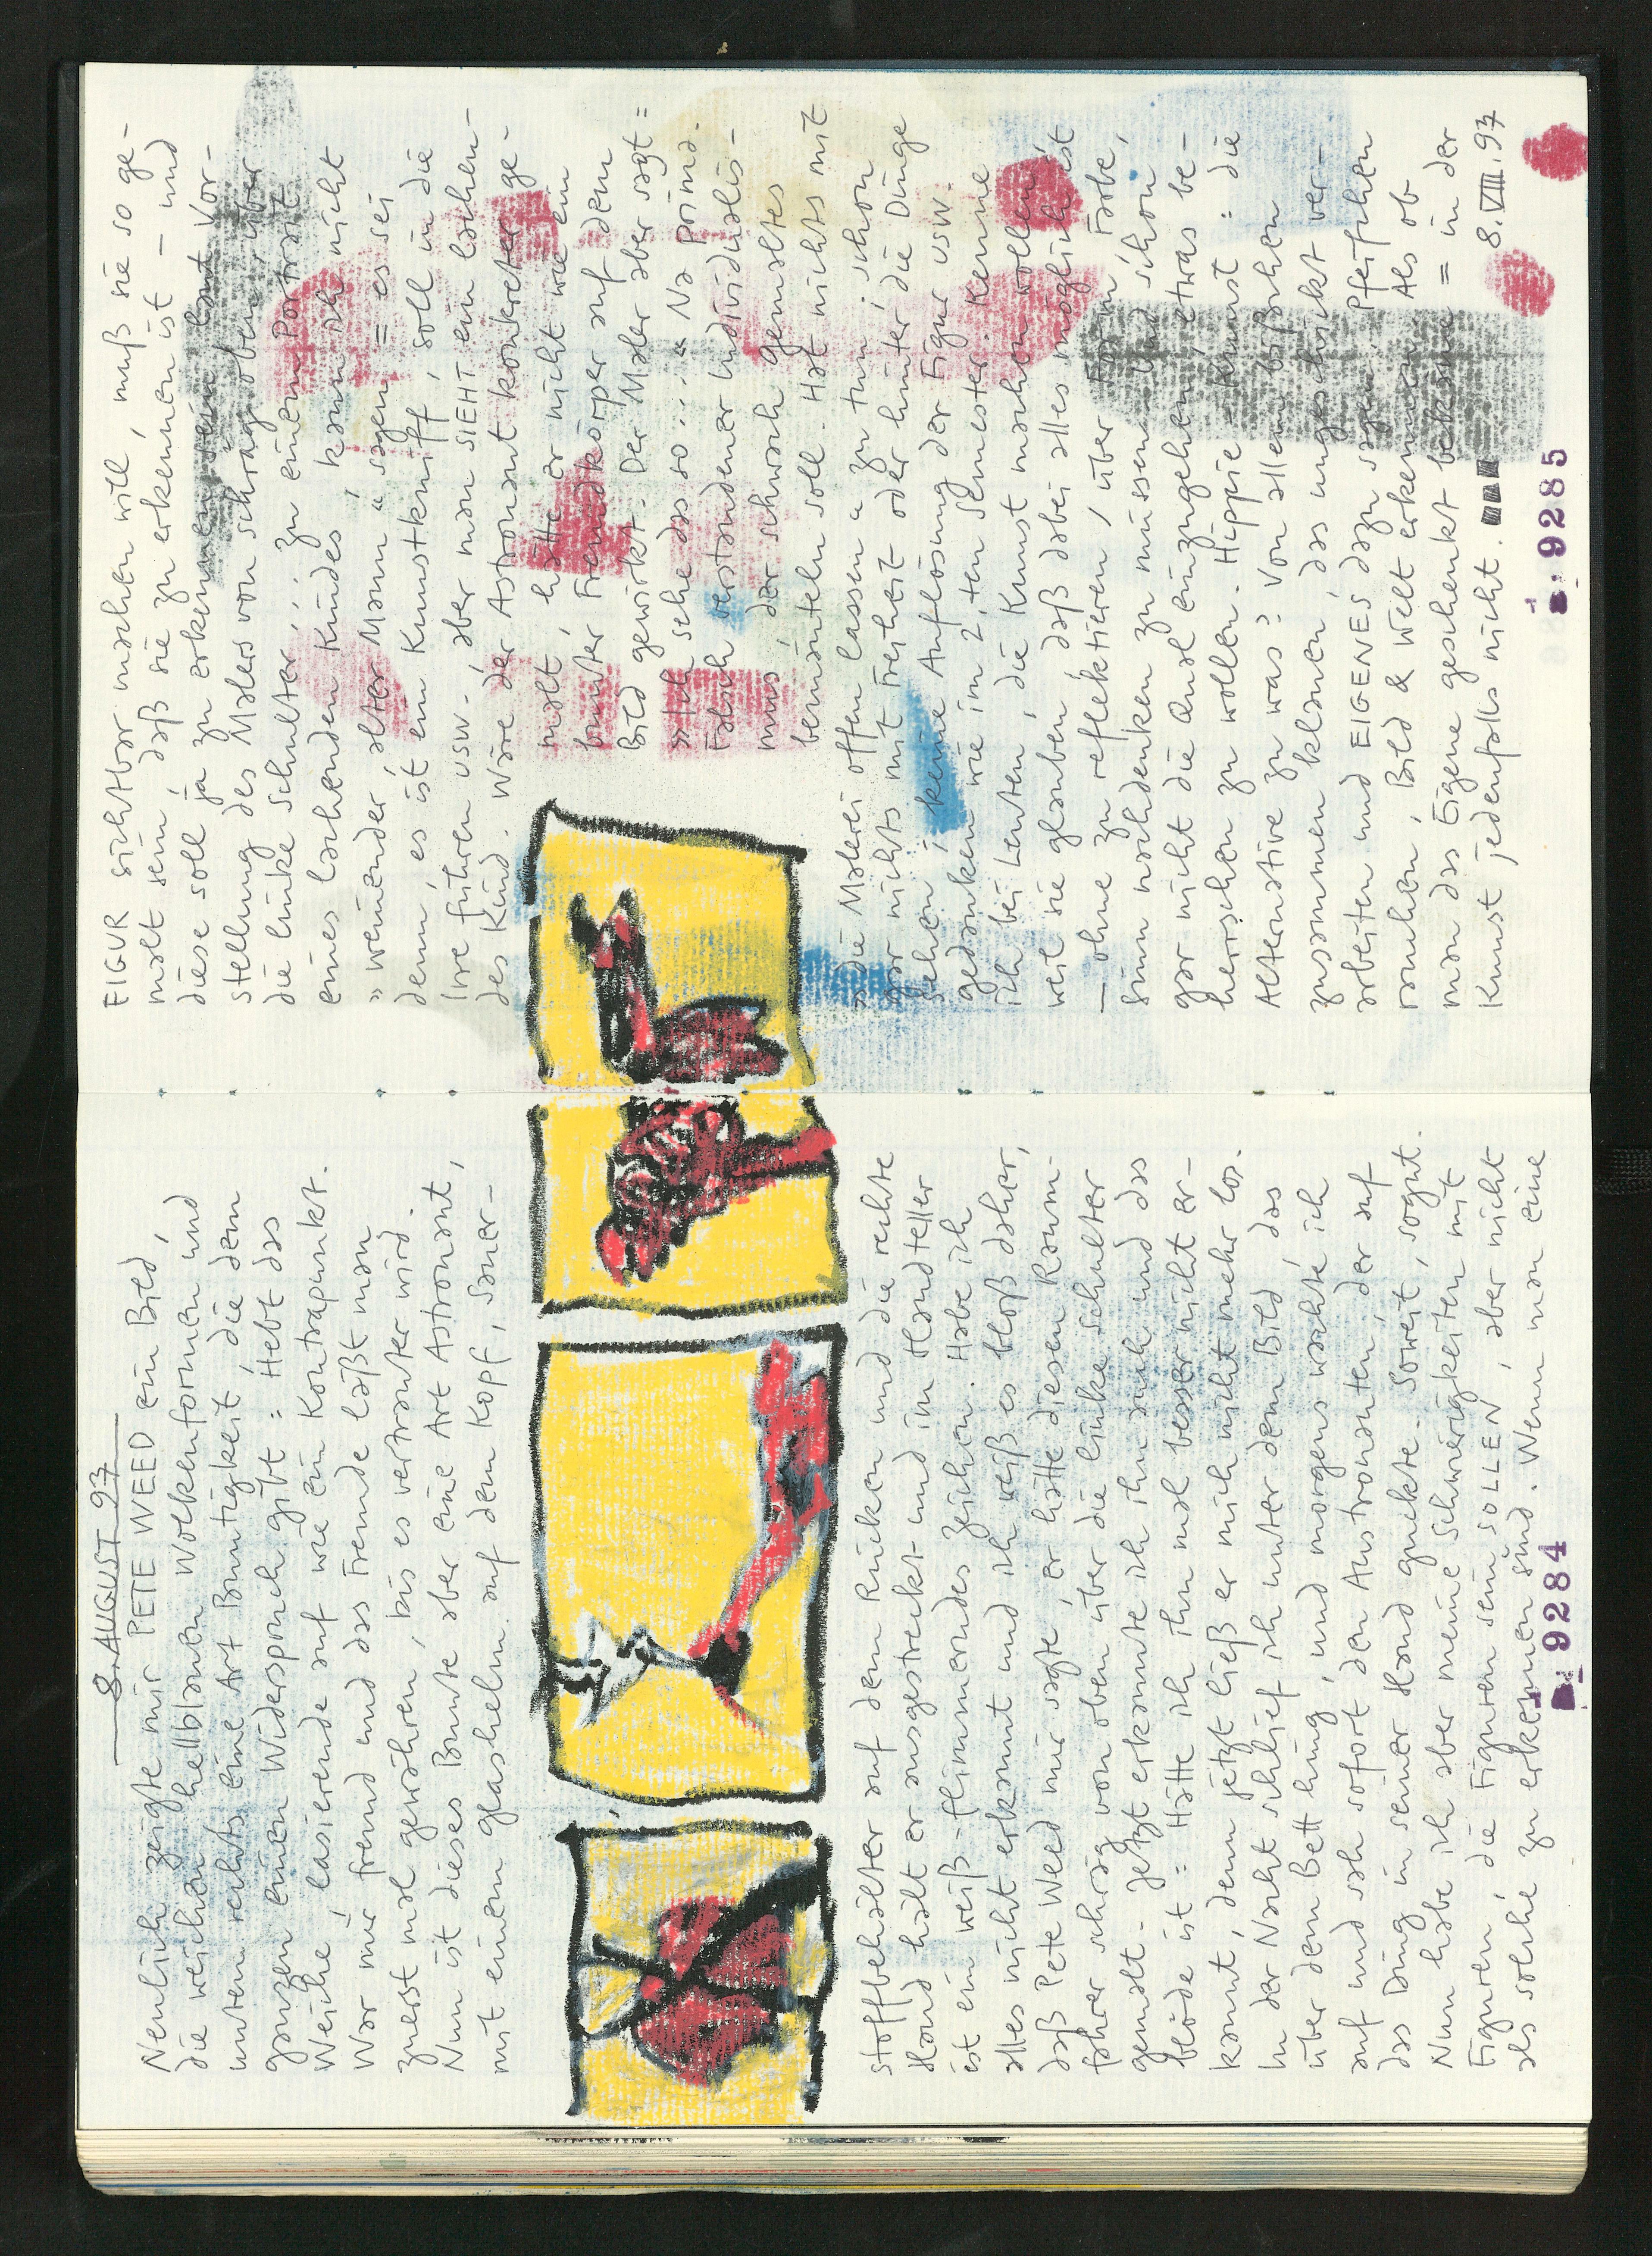 8. AUGUST 97
Neulich zeigte mir PETE WEED ein Bild,
die weichen hellblauen Wolkenformen und
unten rechts eine Art Buntigkeit, die dem
ganzen einen Widerspruch gibt = Hebt das
Weiche, lasierende auf wie ein Kontrapunkt.
War mir fremd und das Fremde läßt man
zuerst mal gewähren, bis es vertrauter wird.
Nun ist dieses Bunte aber eine Art Astronaut,
mit einem Glashelm auf dem Kopf, Sauer-
stoffbehälter auf dem Rücken und die rechte
Hand hält er ausgestreckt und im Handteller
ist ein weiß-flimmerndes Zeichen. Habe ich
alles nicht erkannt und ich weiß es bloß daher,
daß Pete Weed mir sagte, er hätte diesen Raum-
fahrer schräg von oben über die linke Schulter
gemalt. Jetzt erkannte ich ihn auch und das
blöde ist = Hätte ich ihn mal besser nicht er-
kannt, denn jetzt ließ er mich nicht mehr los.
In der Nacht schlief ich unter dem Bild das
über dem Bett hing, und morgens wachte ich
auf und sah sofort den Austronauten, der auf
das Ding in seiner Hand guckte. Soweit, sogut.
Nun habe ich aber meine Schwierigkeiten mit
Figuren, die Figuren sein SOLLEN, aber nicht
als solche zu erkennen sind. Wenn man eine
9284
FIGUR sichtbar machen will, muß sie so ge-
malt sein, daß sie zu erkennen ist – und
diese soll ja zu erkennen sein laut Vor-
stellung des Malers von schräg oben über
die linke Schulter,; zu einem Porträt
eines lachenden Kindes, kann ich nicht
» weinender, alter Mann « sagen = es sei
denn, es ist ein Kunstkniff, soll in die
Irre führen usw., aber man SIEHT ein lachen-
des Kind. Wäre der Astronaut konkreter ge-
malt, hätte er nicht wie ein
bunter Fremdkörper auf dem
Bild gewirkt. Der Maler aber sagt =
» Ich sehe das so ... « Na Prima.
Falsch verstandener Individualis-
mus, der schwach gemaltes
bemänteln soll. Hat nichts mit
» die Malerei offen lassen « zu tun; schon
gar nichts mit Freiheit oder hinter die Dinge
sehen, keine Auflösung der Figur usw.
gedanken wie im 2,ten Semester. Kenne
ich bei Leuten, die Kunst machen wollen,
weil sie glauben, daß dabei alles möglich ist
– ohne zu reflektieren, über Form, Farbe,
Sinn nachdenken zu müssen. Und schon
gar nicht die Qual einzugehen, etwas be-
herrschen zu wollen. Hippie-Kunst = die
Alternative zu was? Von allem bißchen
zusammen klauen, das ungeschickt ver-
arbeiten und EIGENES dazu sagen, Pfeifchen
rauchen, Bild & Welt erkennen. Als ob
man das Eigene geschenkt bekäme = in der
Kunst jedenfalls nicht. 8.VIII.97
9285